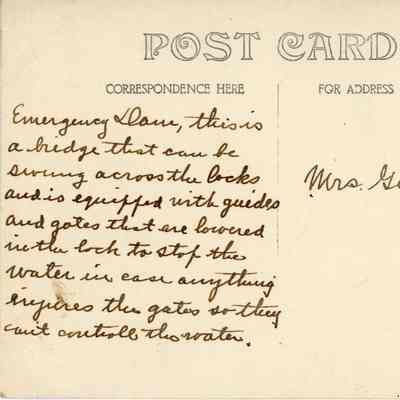 POST CARD
CORRESPONDENCE HERE
FOR ADDRESS
Emergency Dam, this is
a bridge that can be
swung across the locks
and is equipped with guides
and gates that are lowered
in the lock to stop the
water in case anything
injures the gates so they
cant controll the water.
Mrs. Ge